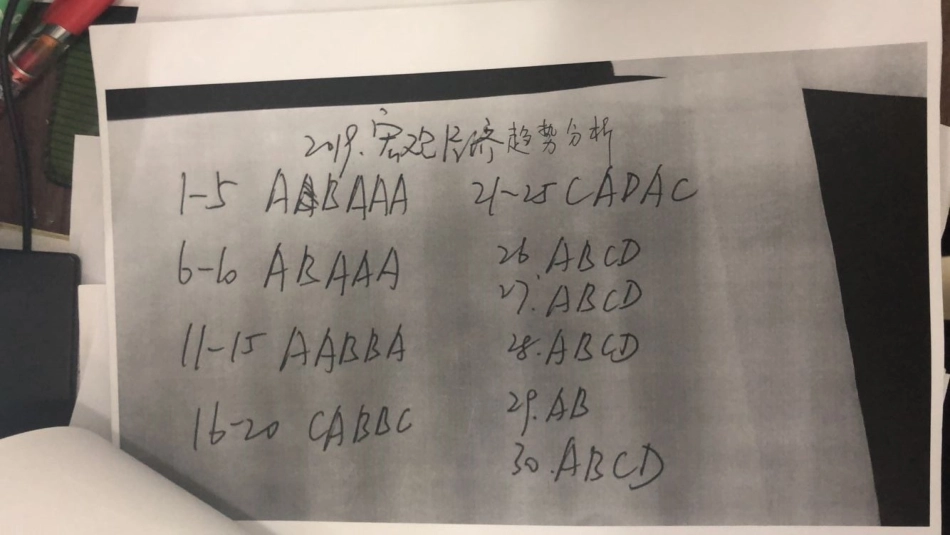 2019.宏观经济趋势分析
1-5 ABAAA
6-10 ABAAA
11-15 AABBA
16-20 CABBC
21-25 CADAC
26.ABCD
27.ABCD
28.ABCD
29.AB
30.ABCD